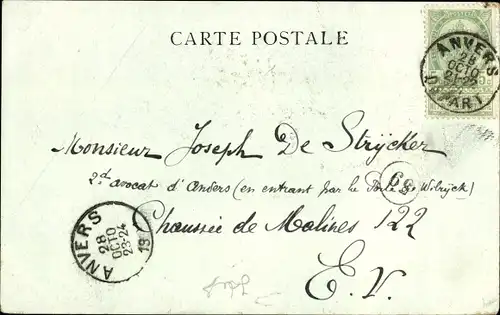 CARTE POSTALE
ANVERS
28
OCTO
DÉPART
Monsieur Joseph De Strÿcker
2d avocat d'Anvers (en entrant par la Porte de Wilrÿck)
69
Chaussée de Malines 122
E. V.
ANVERS
28
OCTO
23-24
19